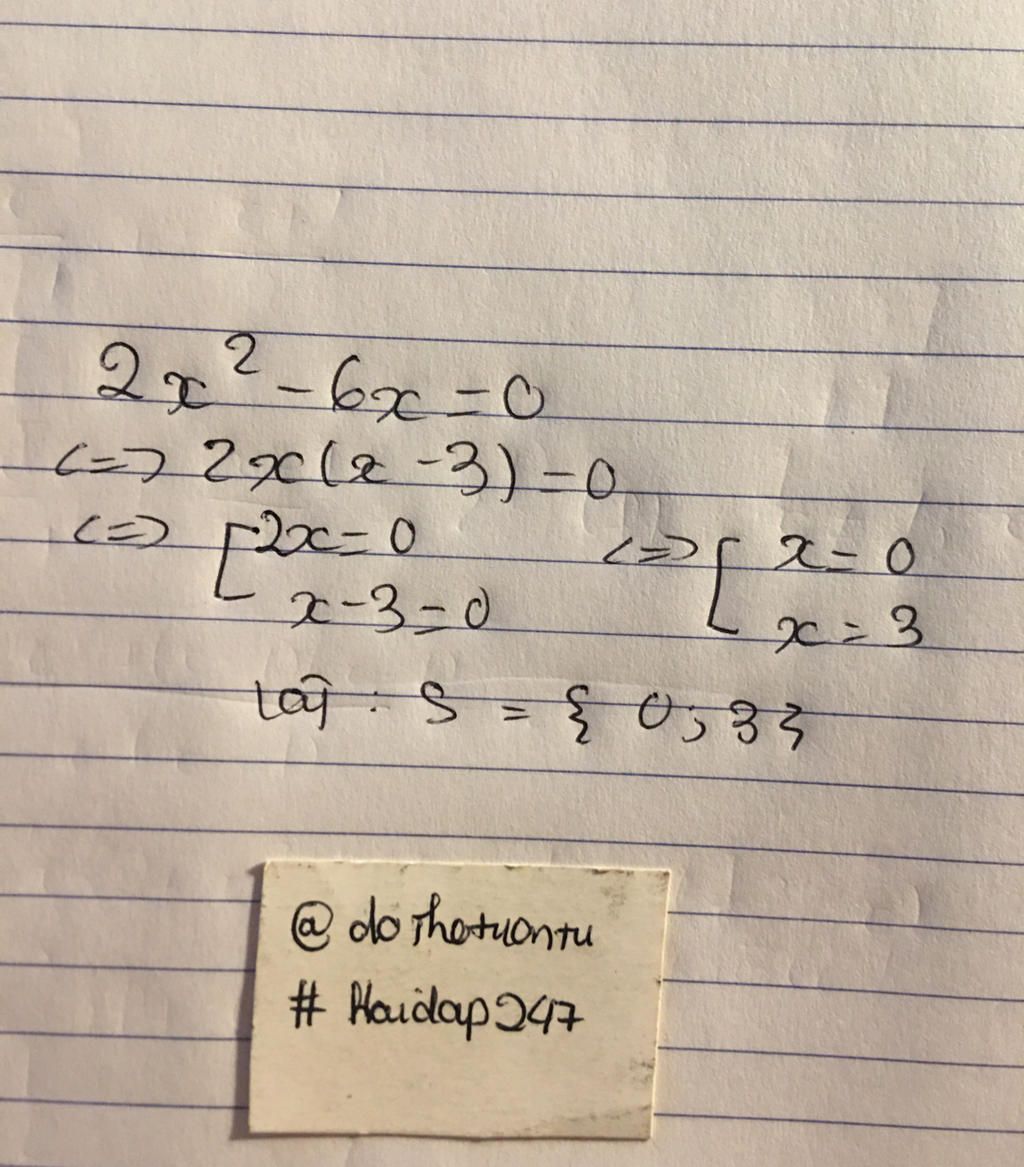 2x² - 6x = 0
<=> 2x(x - 3) = 0
<=> [ 2x = 0 <=> [ x = 0
x - 3 = 0 x = 3
Vậy : S = { 0 ; 3 }
@ dothetuantu
# Hoidap247